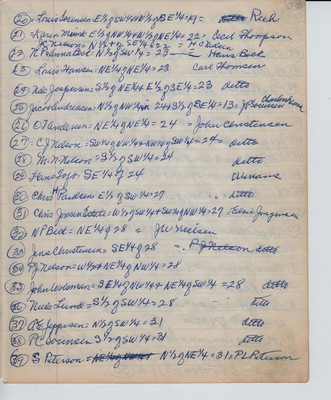 (20) = Louis Sorensen E½ of SW¼ W½ of SE¼ = 19 = Rich
(21) = Karen Monk E½ of NW¼ W½ of NE¼ = 22 = Cecil Thompson
(22) = Nielsen = N½ of SE¼ = 22 = H C
(23) = N P Bick = N½ of SW¼ = 23 Hans Bick
(23) = Louis Hansen = NE¼ of NE¼ = 23 Carl Thomsen
(24) = Nels Jespersen = S½ of NE¼ E½ of SE¼ = 23 ditto
(25) = Jacob Andreasen = N½ of NW¼ in 24 S½ of = 13 =
(26) = O J Andersen = NE¼ of NE¼ = 24 = John Christensen
(27) = C J Nelson = SW¼ of NW¼ + NW¼ of SW¼ = 24 = ditto
(28) = M. N. Nelson = S½ of SW¼ = 24 ditto
(29) = Hans = SE¼ of 24
(30) = Chris Paulsen E½ of SW¼ = 27 ditto
(31) = Chris Jensen Estate = W½ of SW¼ + SW¼ of NW¼ = 27 = Jorgensen
(32) = N P Bick = NE¼ of 28 = J W Nielsen
(33) = Jens Christensen SE¼ of 28 = P J Nelson ditto
(34) = P J Nelson = W½ + NE¼ of NW¼ = 28
(35) = John = SE¼ of NW¼ + NE¼ of SW¼ = 28 ditto
(36) = Niels Lund = S½ of SW¼ = 28 ditto
(37) = P E Jeppesen = N½ of SW¼ = 31 ditto
(38) = P C Sorensen S½ of SW¼ = 31 ditto
(39) = S Peterson = N½ of NE¼ = 31 = P L Peterson